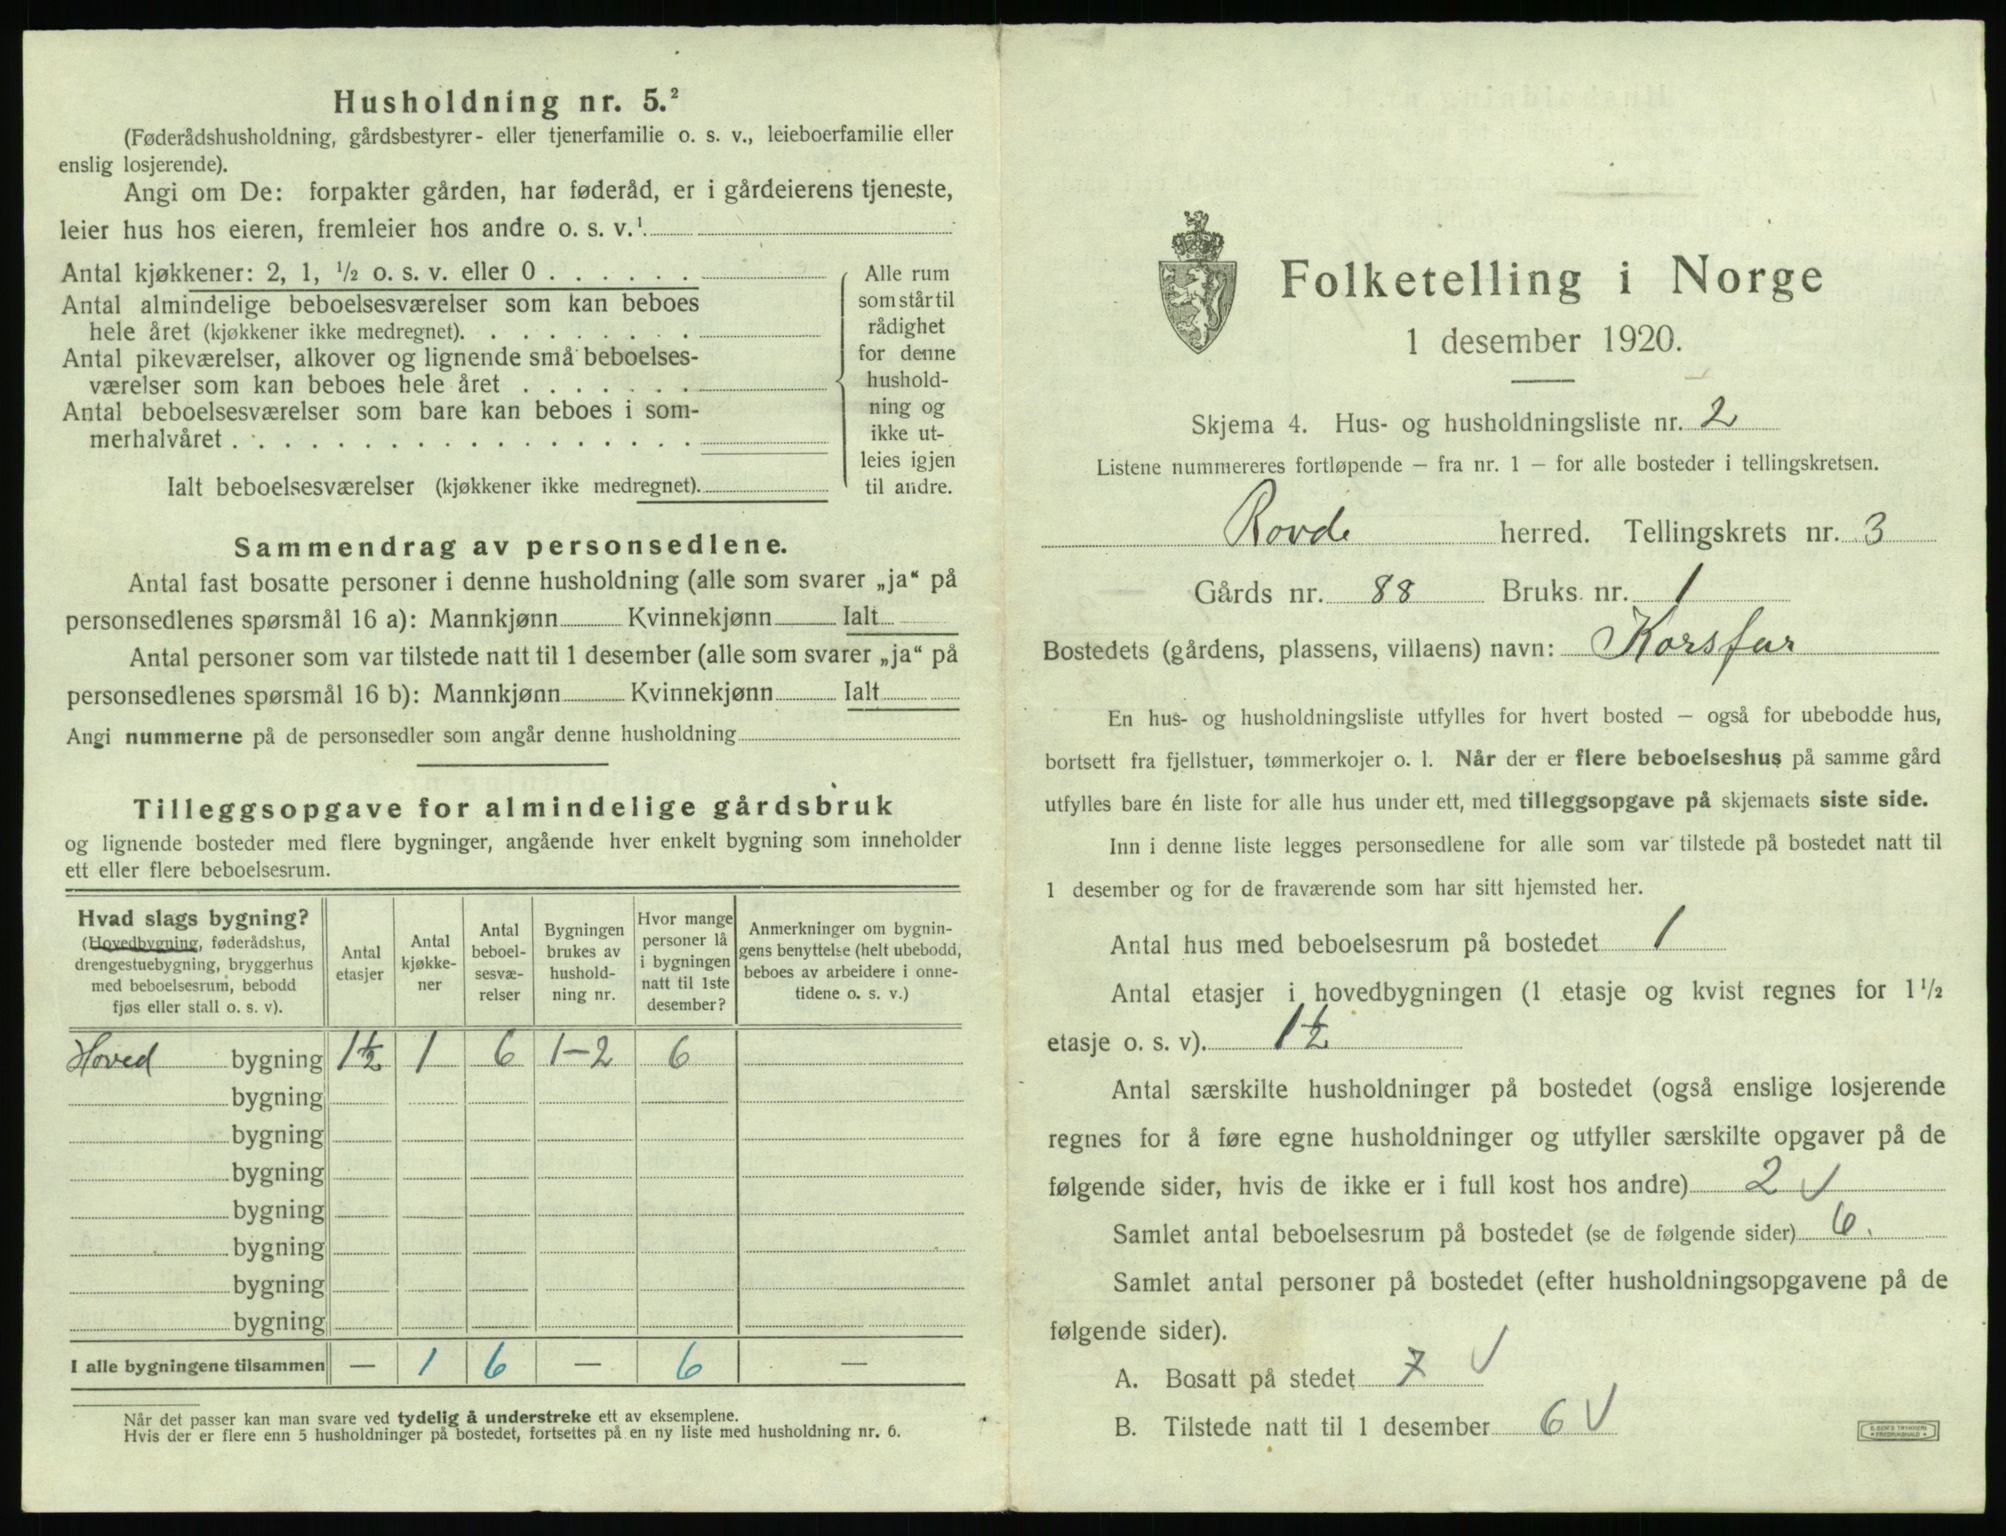 Husholdning nr. 5.²
(Føderådshusholdning, gårdsbestyrer- eller tjenerfamilie o. s. v., leieboerfamilie eller
enslig losjerende).
Angi om De: forpakter gården, har føderåd, er i gårdeierens tjeneste,
leier hus hos eieren, fremleier hos andre o. s. v.¹
Antal kjøkkener: 2, 1, ½ o. s. v. eller 0 . . . . . .
Antal almindelige beboelsesværelser som kan beboes
hele året (kjøkkener ikke medregnet). . . . . . . .
Antal pikeværelser, alkover og lignende små beboelses-
værelser som kan beboes hele året . . . . . . .
Antal beboelsesværelser som bare kan beboes i som-
merhalvåret . . . . . . . . . . . . . . . . . .
Ialt beboelsesværelser (kjøkkener ikke medregnet).
Alle rum
som står til
rådighet
for denne
hushold-
ning og
ikke ut-
leies igjen
til andre.
Sammendrag av personsedlene.
Antal fast bosatte personer i denne husholdning (alle som svarer „ja“ på
personsedlenes spørsmål 16 a): Mannkjønn Kvinnekjønn Ialt
Antal personer som var tilstede natt til 1 desember (alle som svarer „ja“ på
personsedlenes spørsmål 16 b): Mannkjønn Kvinnekjønn Ialt
Angi nummerne på de personsedler som angår denne husholdning
Tilleggsopgave for almindelige gårdsbruk
og lignende bosteder med flere bygninger, angående hver enkelt bygning som inneholder
ett eller flere beboelsesrum.
Hvad slags bygning?
(Hovedbygning, føderådshus,
drengestuebygning, bryggerhus
med beboelsesrum, bebodd
fjøs eller stall o. s. v).
Antal
etasjer
Antal
kjøkke-
ner
Antal
beboel-
sesvæ-
relser
Bygningen
brukes av
hushold-
ning nr.
Hvor mange
personer lå
i bygningen
natt til 1ste
desember?
Anmerkninger om bygnin-
gens benyttelse (helt ubebodd,
beboes av arbeidere i onne-
tidene o. s. v.)
Hoved bygning 1½ 1 6 1-2 6
bygning
bygning
bygning
bygning
bygning
bygning
bygning
I alle bygningene tilsammen — 1 6 — 6 —
Når det passer kan man svare ved tydelig å understreke ett av eksemplene.
Hvis der er flere enn 5 husholdninger på bostedet, fortsettes på en ny liste med husholdning nr. 6.
Folketelling i Norge
1 desember 1920.
Skjema 4. Hus- og husholdningsliste nr. 2
Listene nummereres fortløpende — fra nr. 1 — for alle bosteder i tellingskretsen.
Rovde herred. Tellingskrets nr. 3
Gårds nr. 88 Bruks nr. 1
Bostedets (gårdens, plassens, villaens) navn: Korsfur
En hus- og husholdningsliste utfylles for hvert bosted — også for ubebodde hus,
bortsett fra fjellstuer, tømmerkojer o. l. Når der er flere beboelseshus på samme gård
utfylles bare én liste for alle hus under ett, med tilleggsopgave på skjemaets siste side.
Inn i denne liste legges personsedlene for alle som var tilstede på bostedet natt til
1 desember og for de fraværende som har sitt hjemsted her.
Antal hus med beboelsesrum på bostedet 1
Antal etasjer i hovedbygningen (1 etasje og kvist regnes for 1½
etasje o. s. v). 1½
Antal særskilte husholdninger på bostedet (også enslige losjerende
regnes for å føre egne husholdninger og utfyller særskilte opgaver på de
følgende sider, hvis de ikke er i full kost hos andre) 2 √
Samlet antal beboelsesrum på bostedet (se de følgende sider) 6.
Samlet antal personer på bostedet (efter husholdningsopgavene på de
følgende sider).
A. Bosatt på stedet 7 √
B. Tilstede natt til 1 desember 6 √